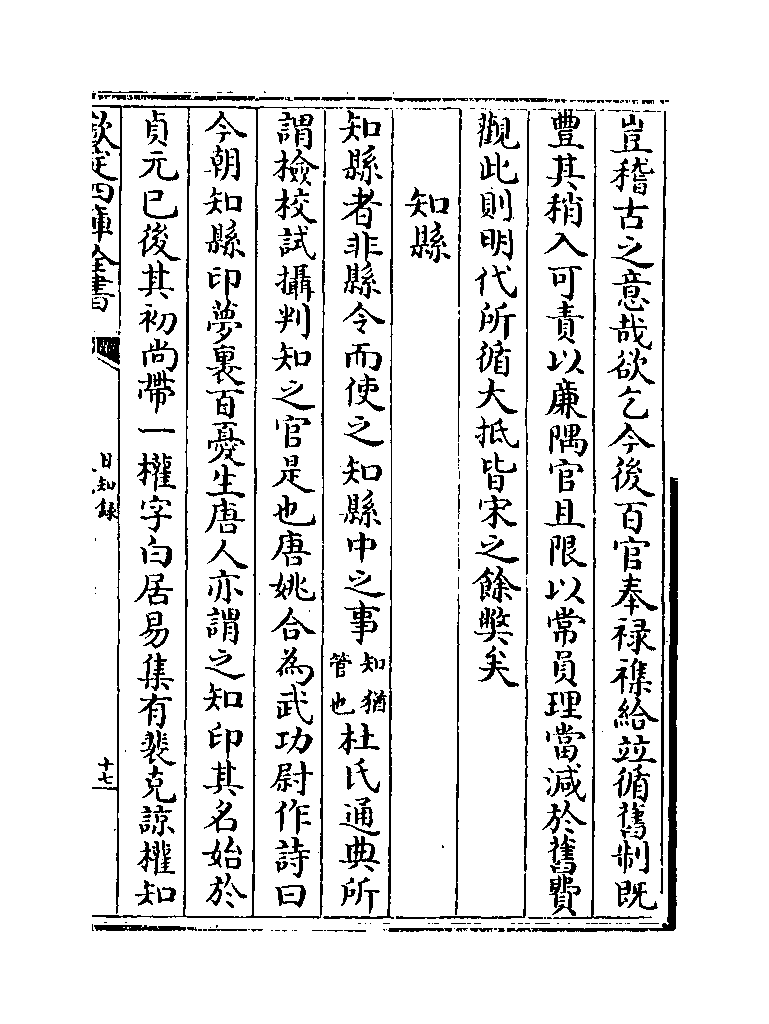 豈稽古之意哉欲乞今後百官奉祿襍給並循舊制既
豐其稍入可責以廉隅官且限以常員理當減於舊費
觀此則明代所循大抵皆宋之餘弊矣
知縣
知縣者非縣令而使之知縣中之事知猶管也杜氏通典所
謂檢校試攝判知之官是也唐姚合為武功尉作詩曰
今朝知縣印夢裏百憂生唐人亦謂之知印其名始於
貞元已後其初尚帶一權字白居易集有裴克諒權知
欽定四庫全書
日知錄
十七